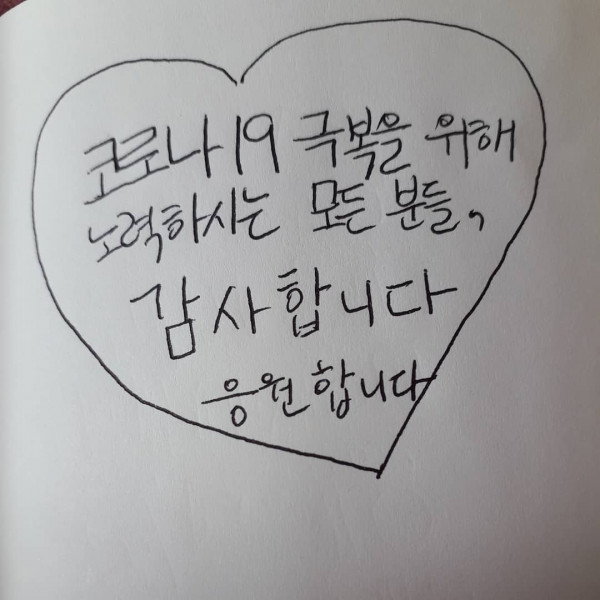 코로나19 극복을 위해
노력하시는 모든 분들,
감사합니다
응원합니다